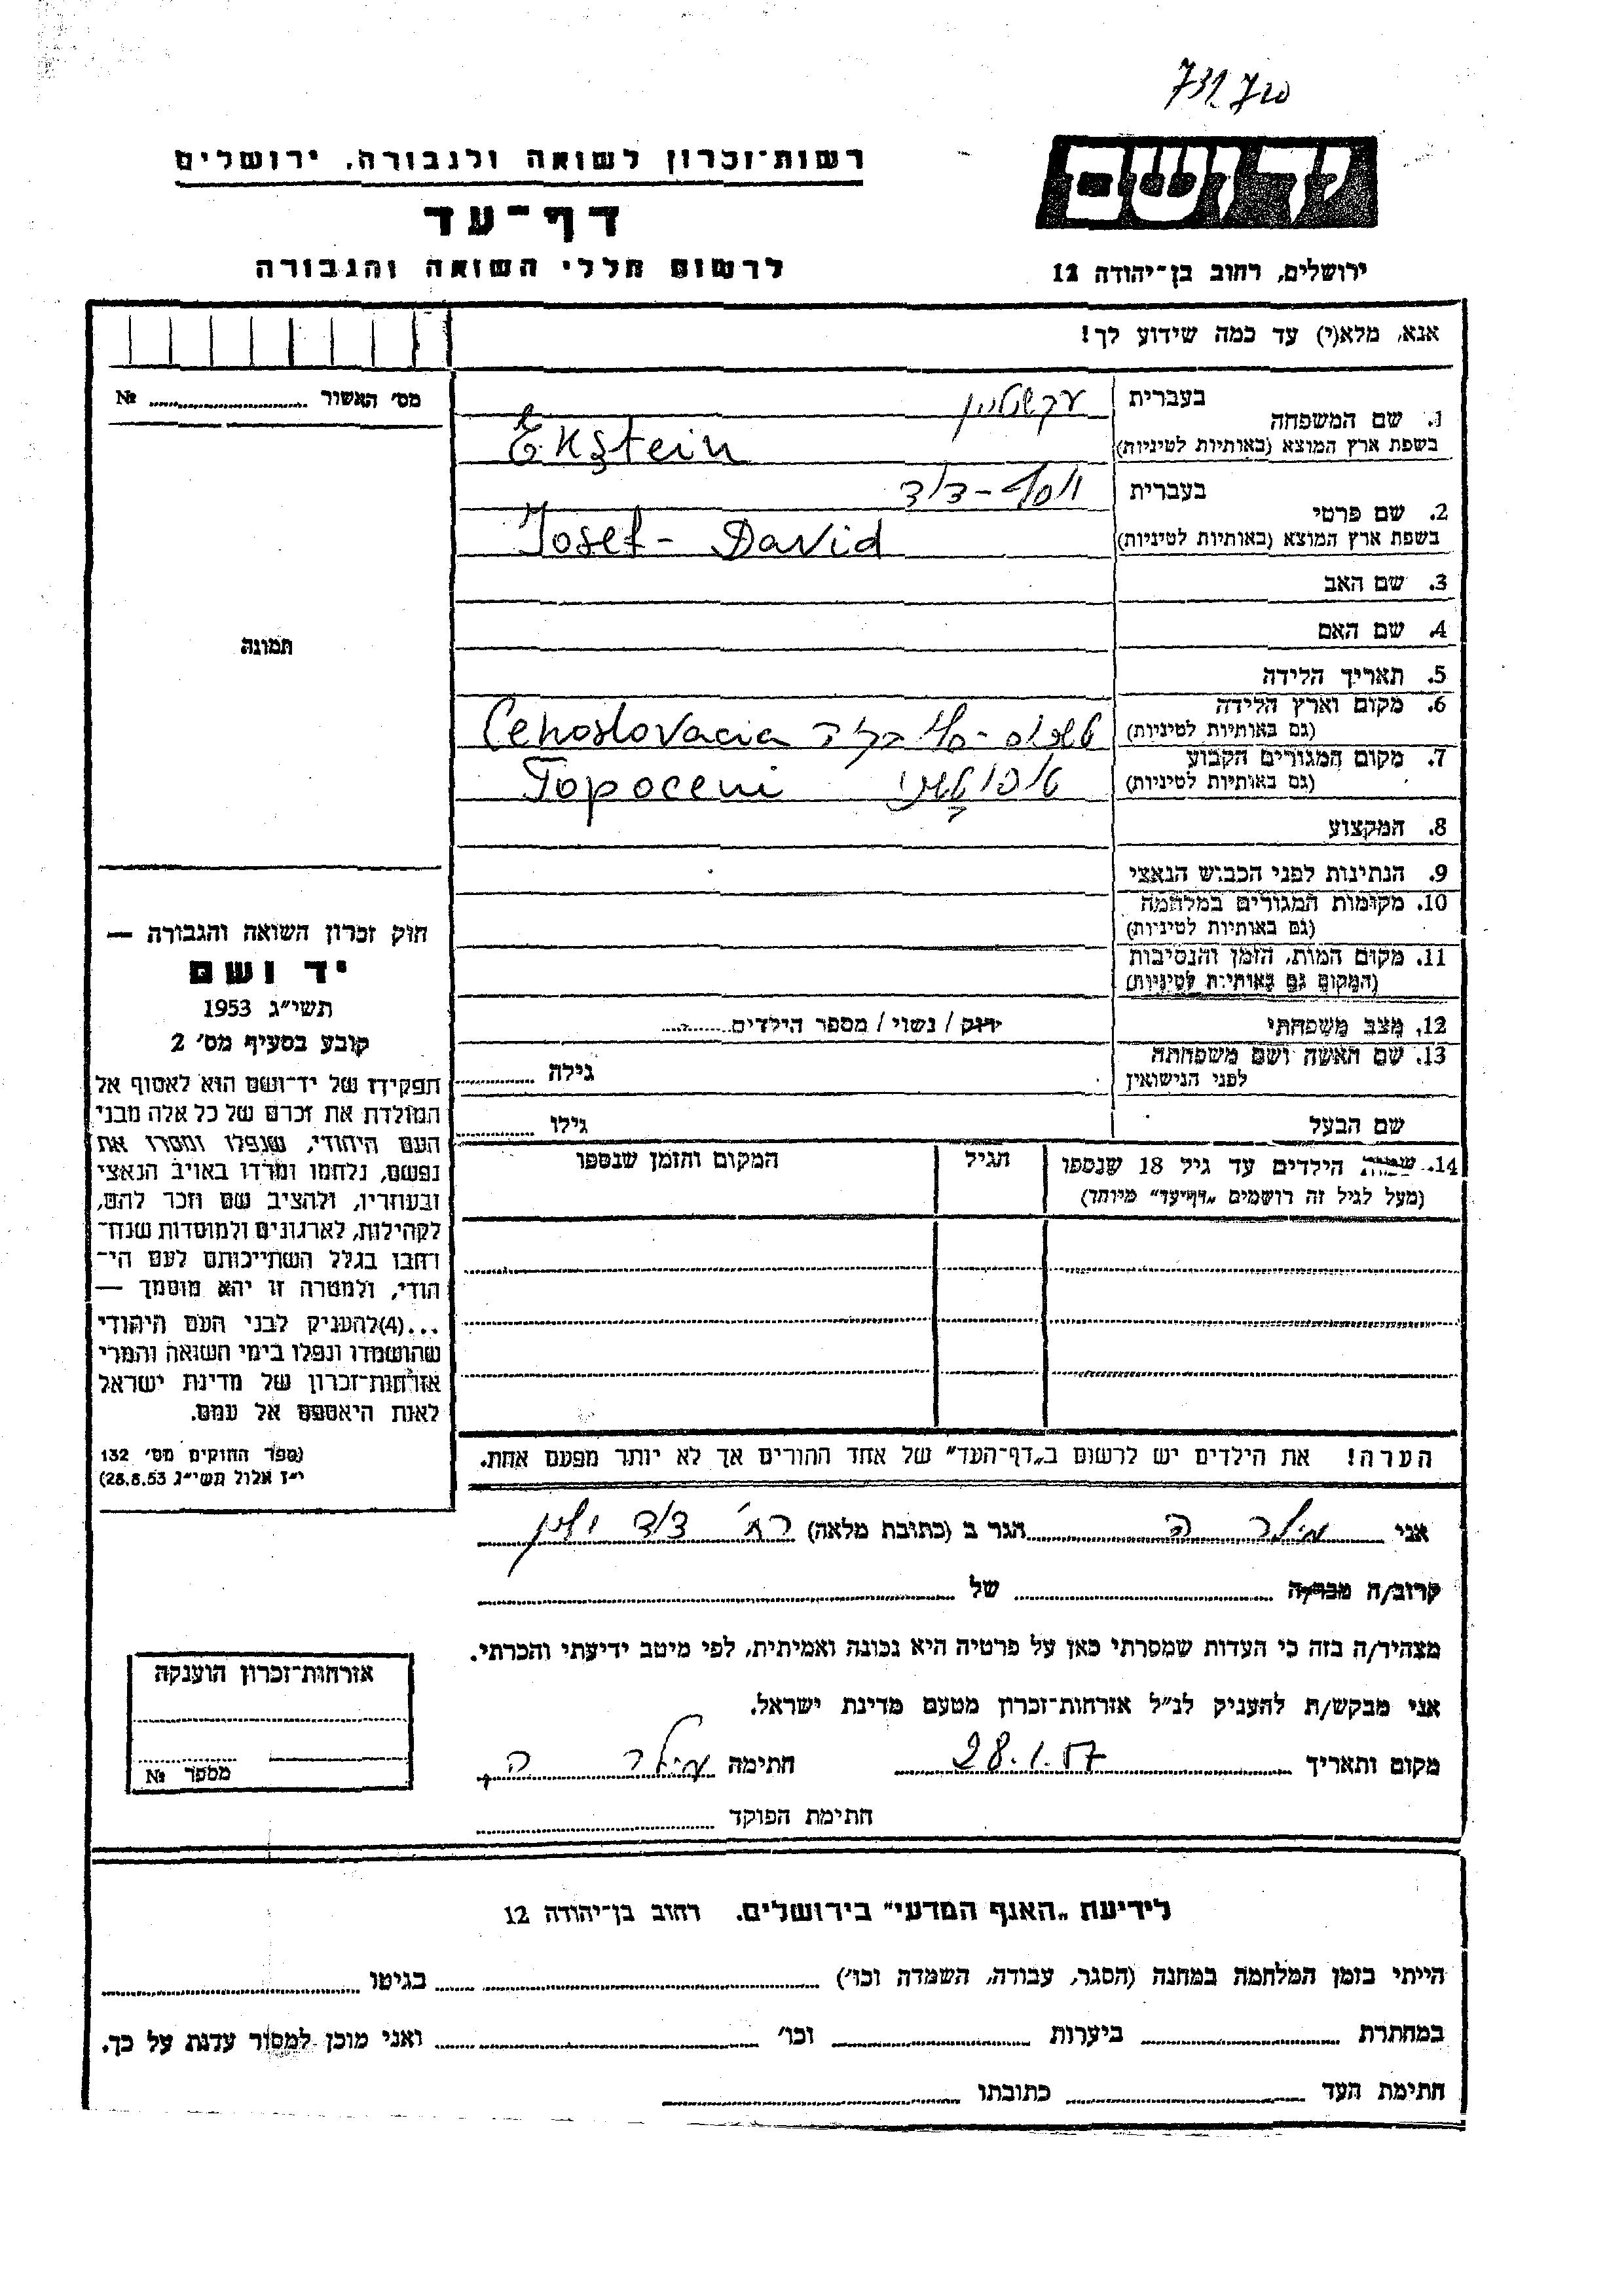 731/720
רשות־זכרון לשואה ולגבורה, ירושלים
יד ושם
דף־עד
לרשום חללי השואה והגבורה
ירושלים, רחוב בן־יהודה 12
אנא, מלא(י) עד כמה שידוע לך!
מס' האשור № ........
1. שם המשפחה
בעברית עקשטיין
בשפת ארץ המוצא (באותיות לטיניות) Ekstein
2. שם פרטי
בעברית יוסף-דוד
בשפת ארץ המוצא (באותיות לטיניות) Josef - David
3. שם האב
4. שם האם
תמונה
5. תאריך הלידה
6. מקום וארץ הלידה
(גם באותיות לטיניות) Cehoslovacia
7. מקום המגורים הקבוע
(גם באותיות לטיניות) Topoceni
8. המקצוע
9. הנתינות לפני הכבוש הנאצי
10. מקומות המגורים במלחמה
(גם באותיות לטיניות)
11. מקום המות, הזמן והנסיבות
(המקום גם באותיות לטיניות)
12. מצב משפחתי רוק / נשוי / מספר הילדים........
13. שם האשה ושם משפחתה
לפני הנישואין גילה ........
שם הבעל גילו ........
14. שמות הילדים עד גיל 18 שנספו הגיל המקום והזמן שנספו
(מעל לגיל זה רושמים „דף־עד" מיוחד)
הערה! את הילדים יש לרשום ב„דף־העד" של אחד ההורים אך לא יותר מפעם אחת.
חוק זכרון השואה והגבורה —
יד ושם
תשי"ג 1953
קובע בסעיף מס' 2
תפקידו של יד־ושם הוא לאסוף אל
המולדת את זכרם של כל אלה מבני
העם היהודי, שנפלו ומסרו את
נפשם, נלחמו ומרדו באויב הנאצי
ובעוזריו, ולהציב שם וזכר להם,
לקהילות, לארגונים ולמוסדות שנח־
רבו בגלל השתייכותם לעם הי־
הודי, ולמטרה זו יהא מוסמך —
...(4)להעניק לבני העם היהודי
שהושמדו ונפלו בימי השואה והמרי
אזרחות־זכרון של מדינת ישראל
לאות היאספם אל עמם.
(ספר החוקים מס' 132
י"ז אלול תשי"ג 28.8.53)
אני מילר ה הגר ב (כתובת מלאה) רח' דוד ילין
קרוב/ה מכר/ה ........ של ........
מצהיר/ה בזה כי העדות שמסרתי כאן על פרטיה היא נכונה ואמיתית, לפי מיטב ידיעתי והכרתי.
אני מבקש/ת להעניק לנ"ל אזרחות־זכרון מטעם מדינת ישראל.
מקום ותאריך 28.1.57 חתימה מילר ה
חתימת הפוקד ........
אזרחות־זכרון הוענקה
מספר №
לידיעת „האגף המדעי" בירושלים. רחוב בן־יהודה 12
הייתי בזמן המלחמה במחנה (הסגר, עבודה, השמדה וכו') ........ בגיטו ........
במחתרת ........ ביערות ........ וכו' ........ ואני מוכן למסור עדות על כך.
חתימת העד ........ כתובתו ........